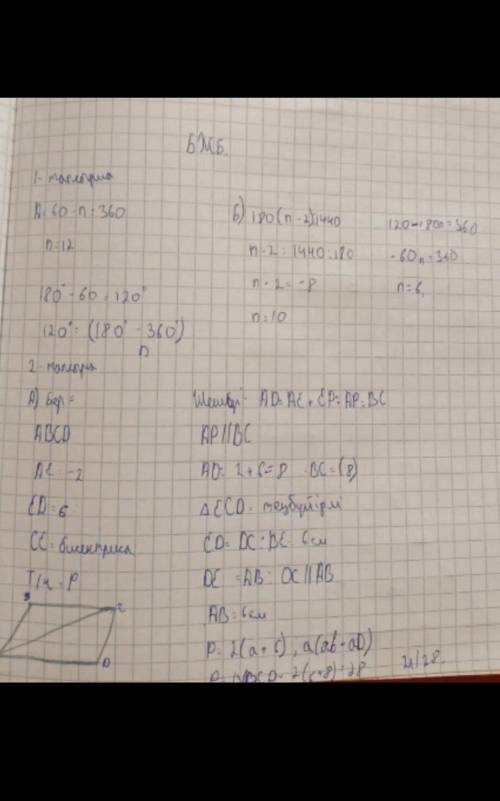 БЖБ.
1- тапсырма
A: 60 · n = 360
n=12
180° - 60 = 120°
120° = (180° - 360°)
n
б) 180(n-2)=1440
n-2 = 1440:180
n-2 = -8
n=10
120n-180n=360
-60n=360
n=6.
2- тапсырма
А) Бер =
ABCD
AE = -2
ED = 6
CE = биссектриса
T/к = P
D
AD = AE + ED = AP = BC
AP//BC
AD = 2+6=8 BC=(8)
ΔECD - теңбүйірлі
ED = DC = BE 6см
DE = AB DC//AB
AB = 6см
P = 2(a+b), a(ab+aD)
P = ABCD = 2(6+8)=28